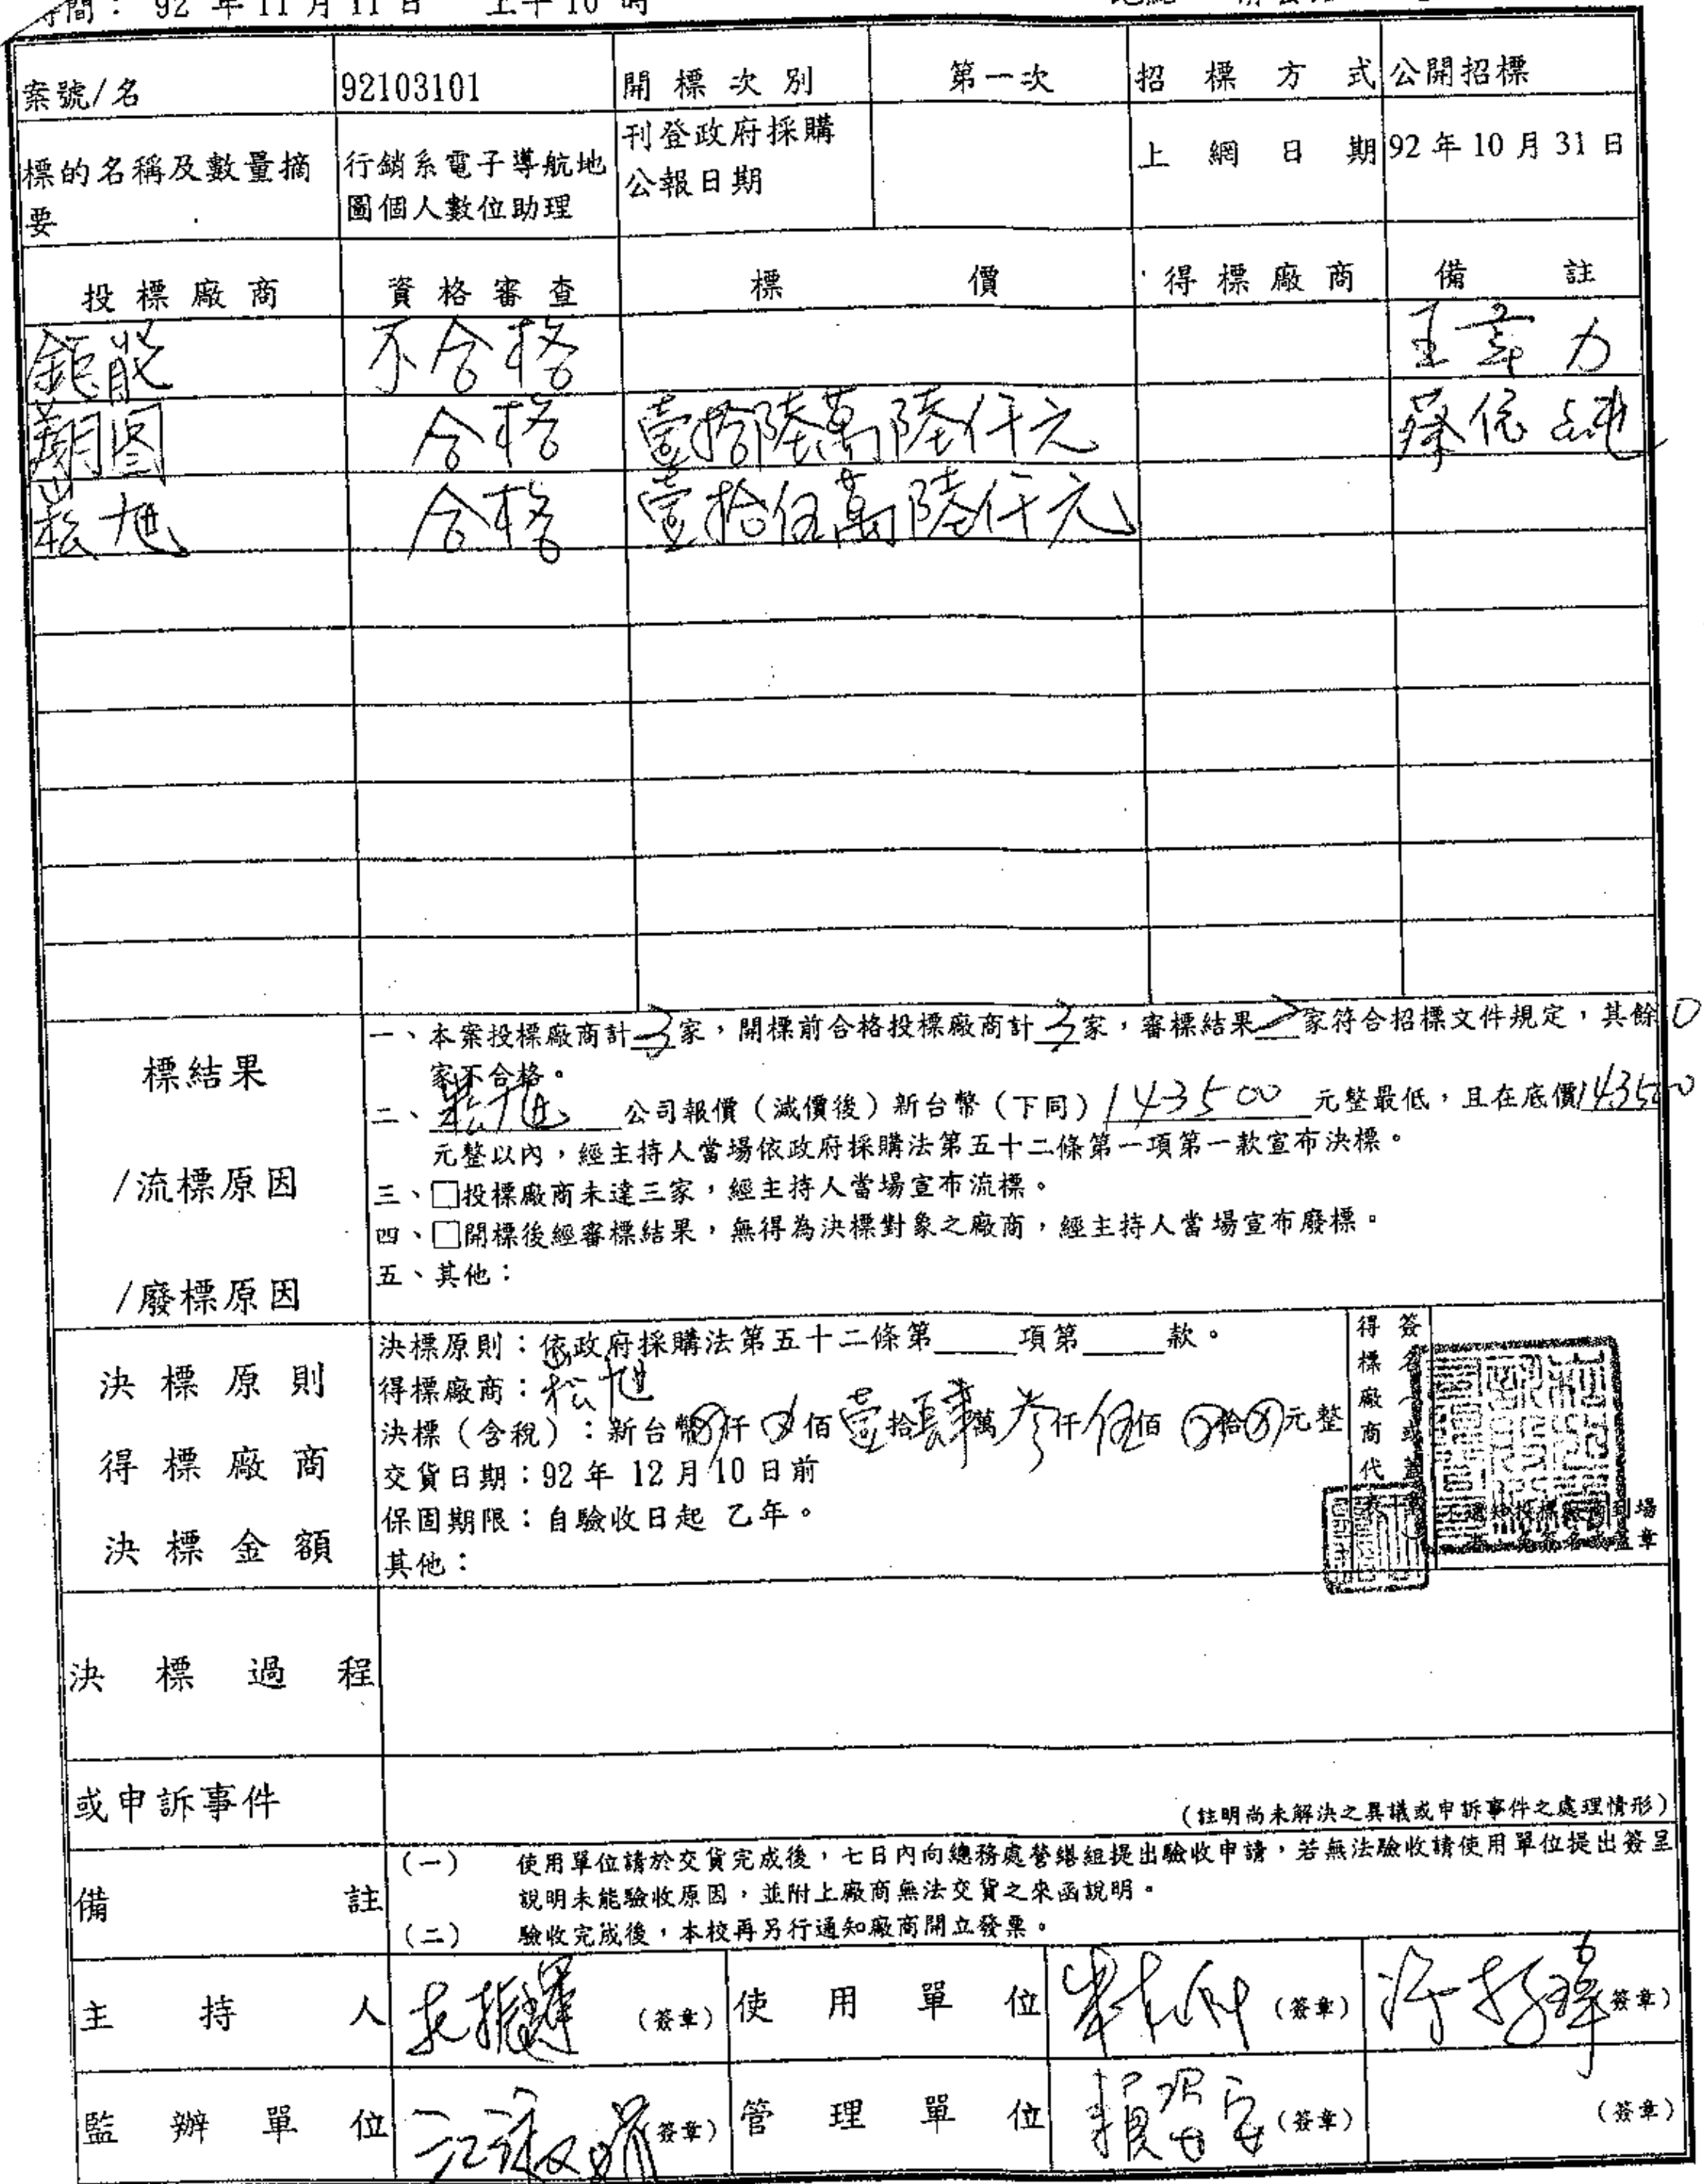 間： 92 年 11 月 11 日 上午 10 時
案號/名 92103101 開標次別 第一次 招標方式 公開招標
標的名稱及數量摘要 行銷系電子導航地圖個人數位助理 刊登政府採購公報日期 上網日期 92 年 10 月 31 日
投標廠商 資格審查 標價 得標廠商 備註
鉅能 不合格
翔图 合格 壹拾陸萬陸仟元 蔡依
崧旭 合格 壹拾伍萬陸仟元
標結果
/流標原因
/廢標原因
一、本案投標廠商計3家，開標前合格投標廠商計3家，審標結果2家符合招標文件規定，其餘0
家不合格。
二、崧旭公司報價（減價後）新台幣（下同）143500元整最低，且在底價143500
元整以內，經主持人當場依政府採購法第五十二條第一項第一款宣布決標。
三、□投標廠商未達三家，經主持人當場宣布流標。
四、□開標後經審標結果，無得為決標對象之廠商，經主持人當場宣布廢標。
五、其他：
決標原則
得標廠商
決標金額
決標原則：依政府採購法第五十二條第____項第____款。
得標廠商：崧旭
決標（含稅）：新台幣 仟 佰壹拾肆萬參仟伍佰 拾 元整
交貨日期：92 年 12 月 10 日前
保固期限：自驗收日起 乙年。
其他：
得標廠商代
簽名或蓋
到場
蓋章
決標過程
或申訴事件
（註明尚未解決之異議或申訴事件之處理情形）
備註
（一） 使用單位請於交貨完成後，七日內向總務處營繕組提出驗收申請，若無法驗收請使用單位提出簽呈
說明未能驗收原因，並附上廠商無法交貨之來函說明。
（二） 驗收完成後，本校再另行通知廠商開立發票。
主持人 （簽章） 使用單位 （簽章） 簽章）
監辦單位 簽章） 管理單位 （簽章） （簽章）